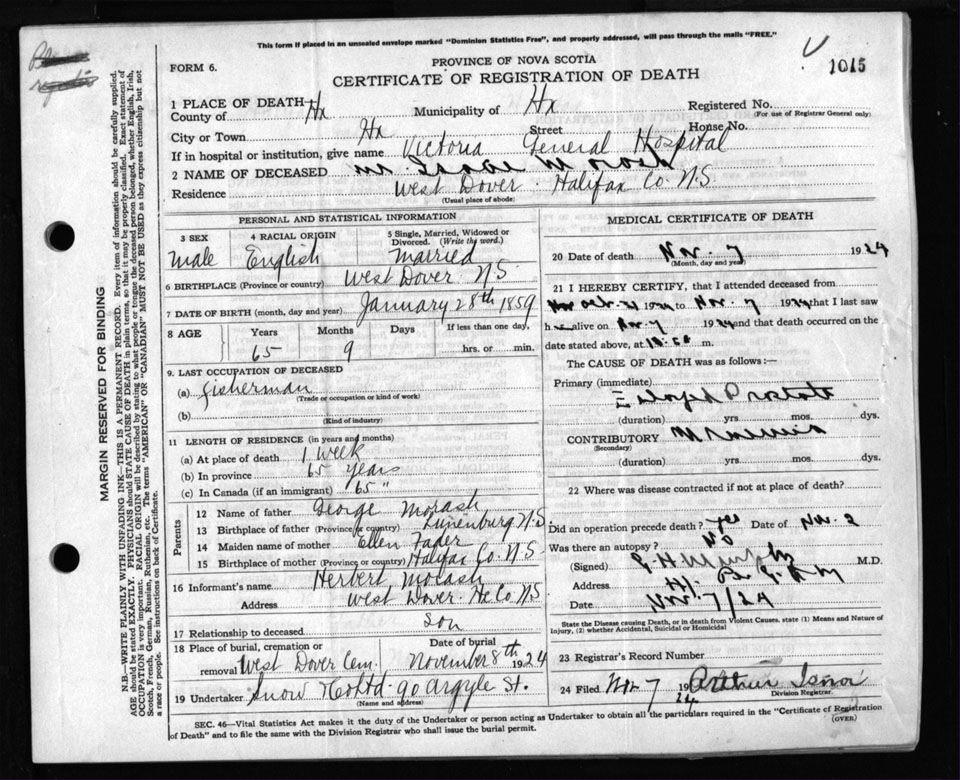 This form if placed in an unsealed envelope marked "Dominion Statistics Free", and properly addressed, will pass through the mails "FREE."
PROVINCE OF NOVA SCOTIA
FORM 6.
CERTIFICATE OF REGISTRATION OF DEATH
1015
1 PLACE OF DEATH
County of Hx Municipality of Hx Registered No.
(For use of Registrar General only)
City or Town Hx Street House No.
If in hospital or institution, give name Victoria General Hospital
2 NAME OF DECEASED Mr. Isaac Morash
Residence West Dover. Halifax Co. N.S
(Usual place of abode)
PERSONAL AND STATISTICAL INFORMATION
3 SEX 4 RACIAL ORIGIN 5 Single, Married, Widowed or Divorced. (Write the word.)
Male English Married
6 BIRTHPLACE (Province or country) West Dover N.S
7 DATE OF BIRTH (month, day and year) January 28th 1859
8 AGE Years Months Days If less than one day,
65 9 hrs. or min.
9. LAST OCCUPATION OF DECEASED
(a) fisherman
(Trade or occupation or kind of work)
(b)
(Kind of industry)
11 LENGTH OF RESIDENCE (in years and months)
(a) At place of death 1 week
(b) In province 65 years
(c) In Canada (if an immigrant) 65 "
Parents
12 Name of father George Morash
13 Birthplace of father (Province or country) Lunenburg N.S
14 Maiden name of mother Ellen Fader
15 Birthplace of mother (Province or country) Halifax Co. N.S
16 Informant's name Herbert Morash
Address West Dover. Hx Co N.S
17 Relationship to deceased Son
18 Place of burial, cremation or removal West Dover Cem. Date of burial November 8th 1924
19 Undertaker Snow & Co Ltd - 90 Argyle St.
(Name and address)
MEDICAL CERTIFICATE OF DEATH
20 Date of death Nov. 7 1924
(Month, day and year)
21 I HEREBY CERTIFY, that I attended deceased from
Oct. 31 1924 to Nov. 7 1924 that I last saw
h alive on Nov 7 1924 and that death occurred on the
date stated above, at m.
The CAUSE OF DEATH was as follows:—
Primary (immediate)
Enlarged Prostate
(duration) yrs. mos. dys.
CONTRIBUTORY
(Secondary)
(duration) yrs. mos. dys.
22 Where was disease contracted if not at place of death?
Did an operation precede death? yes Date of Nov. 2
Was there an autopsy? No
(Signed) Murphy M.D.
Address
Date Nov 7/24
State the Disease causing Death, or in death from Violent Causes, state (1) Means and Nature of Injury, (2) whether Accidental, Suicidal or Homicidal
23 Registrar's Record Number
24 Filed Nov 7 1924 Arthur Isnor
Division Registrar.
SEC. 46—Vital Statistics Act makes it the duty of the Undertaker or person acting as Undertaker to obtain all the particulars required in the "Certificate of Registration
of Death" and to file the same with the Division Registrar who shall issue the burial permit.
(OVER)
MARGIN RESERVED FOR BINDING
N.B.—WRITE PLAINLY WITH UNFADING INK—THIS IS A PERMANENT RECORD. Every item of information should be carefully supplied.
AGE should be stated EXACTLY. PHYSICIANS should STATE CAUSE OF DEATH in plain terms, so that it may be properly classified. Exact statement of
OCCUPATION is very important. RACIAL ORIGIN will be described by stating to what people or tongue the deceased person belonged, whether English, Irish,
Scotch, French, German, Russian, Ruthenian, etc. The terms "AMERICAN" or "CANADIAN" MUST NOT BE USED as they express citizenship but not
a race or people. See instructions on back of Certificate.